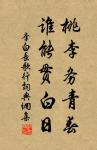 桃李务青春
谁能贯白日
李白长歌行词典佣集